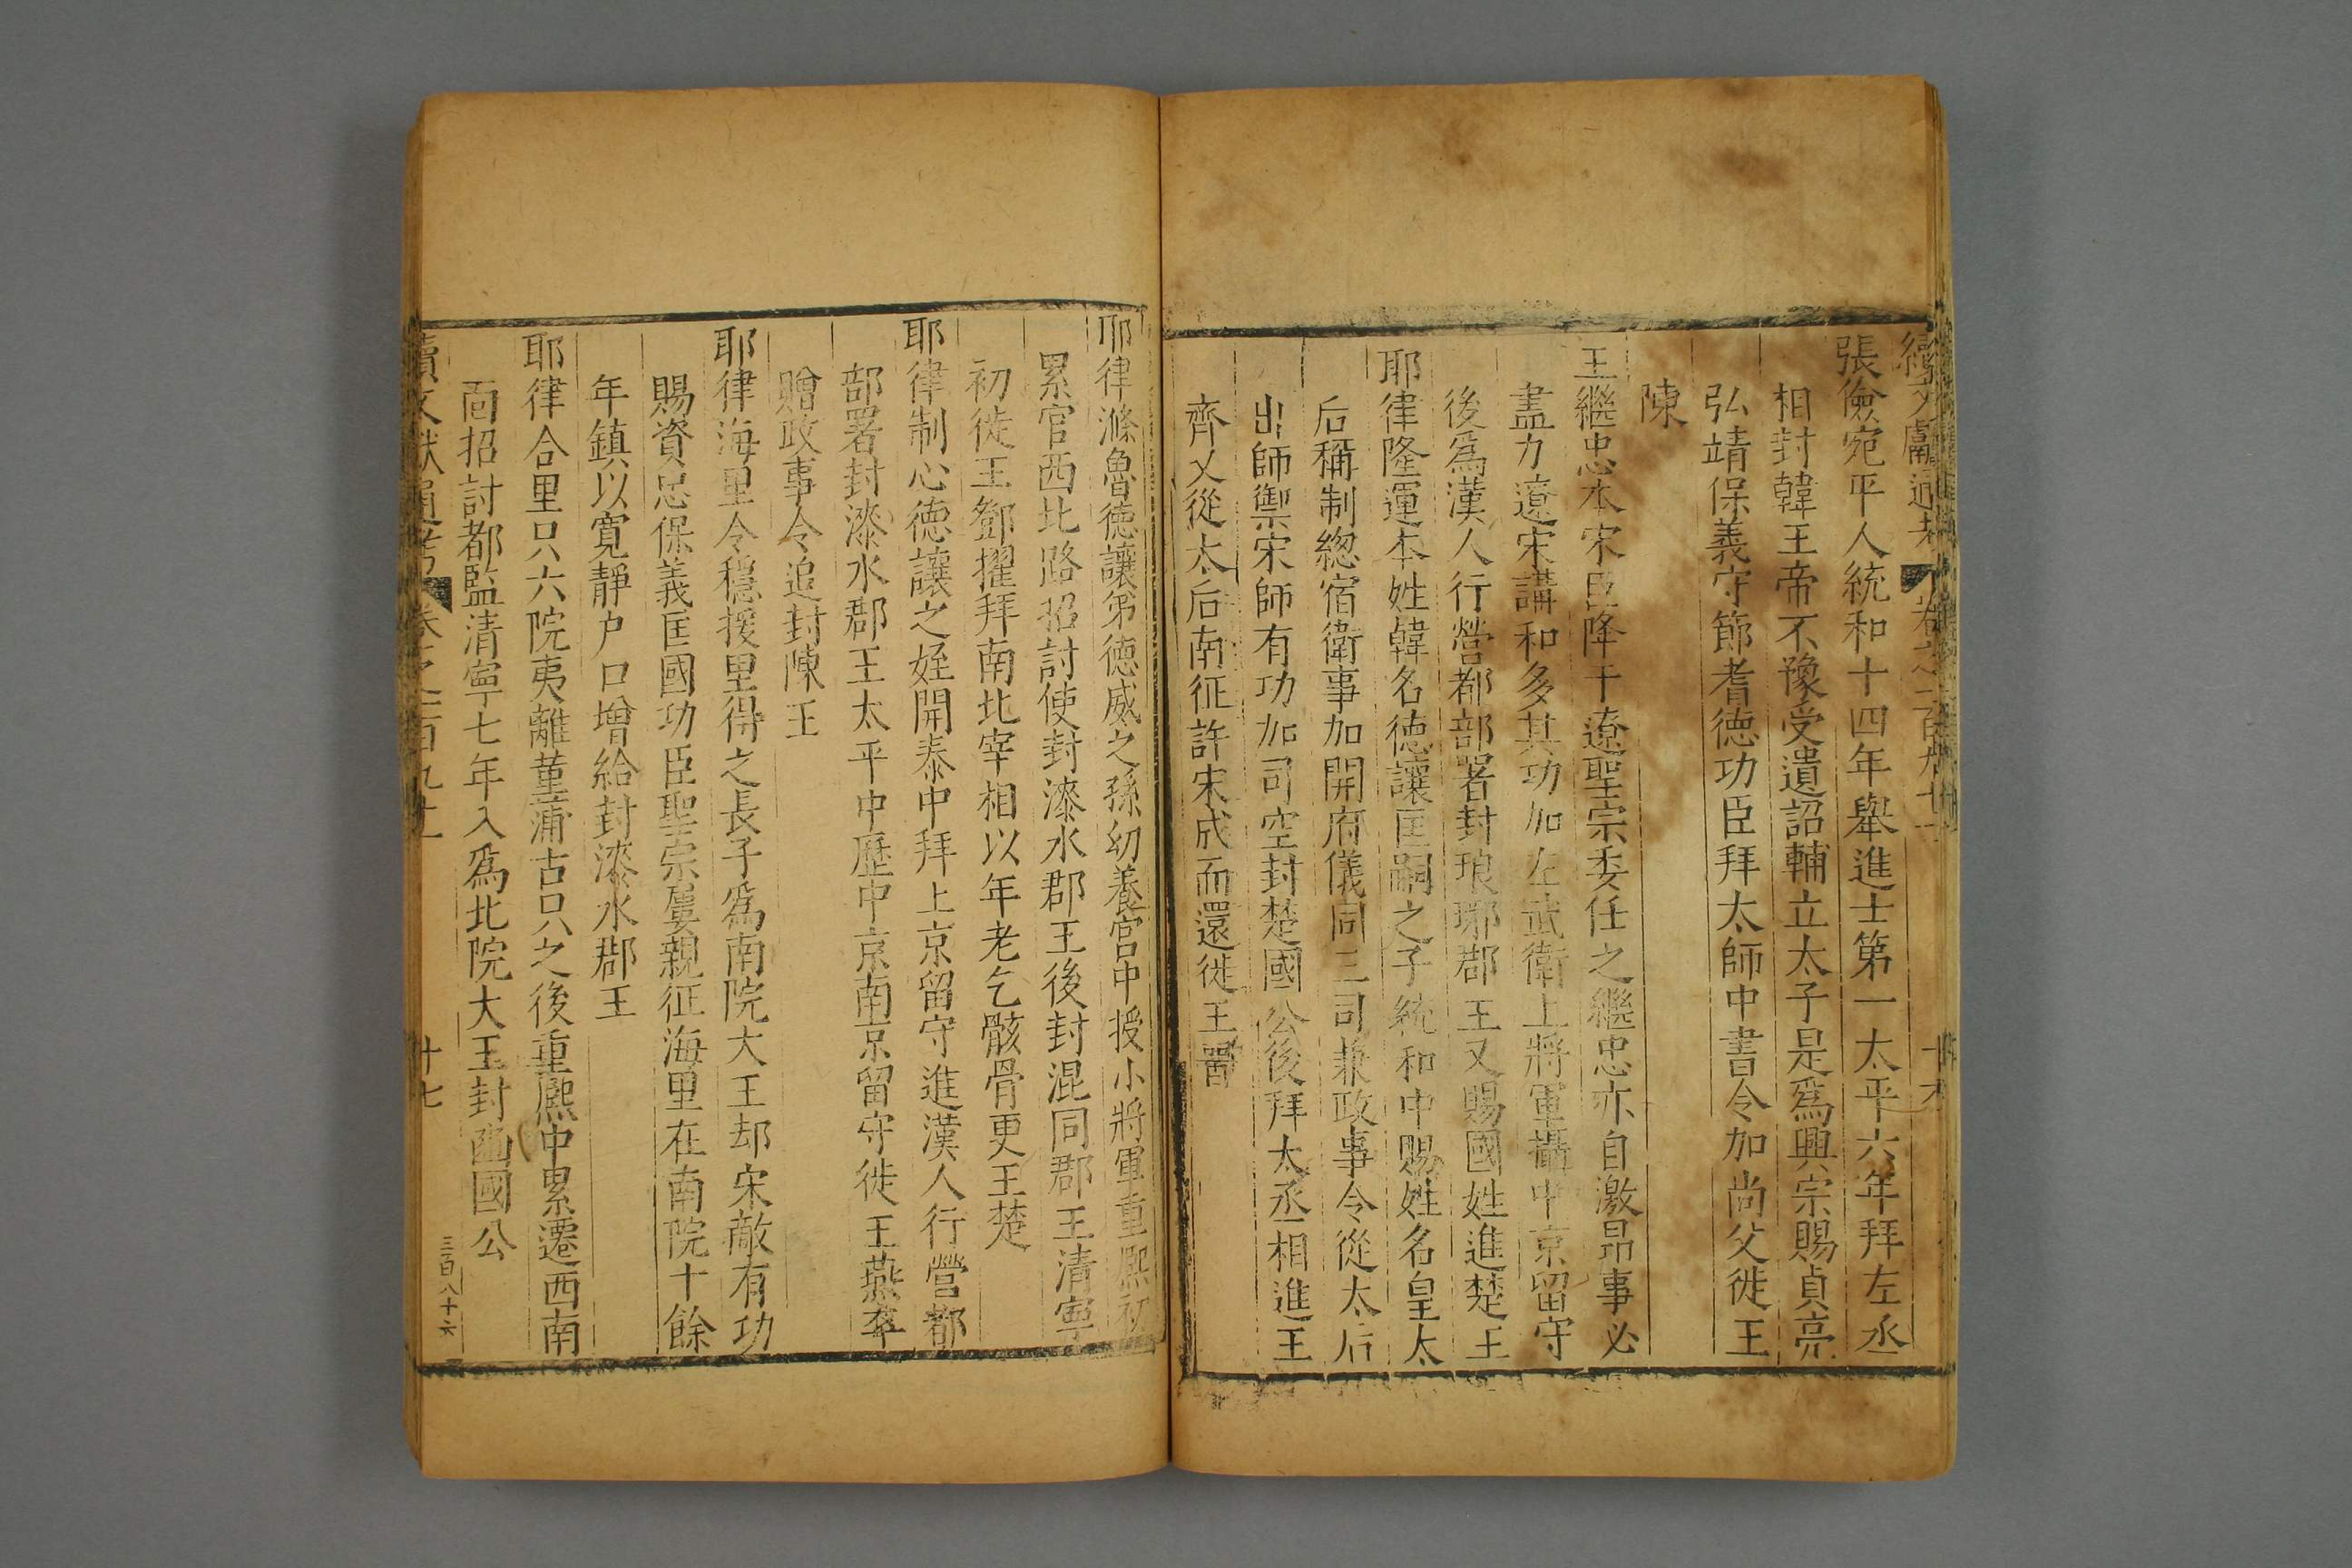 續文獻通考 卷之二百九十一
張儉宛平人統和十四年舉進士第一太平六年拜左丞
相封韓王帝不豫受遺詔輔立太子是爲興宗賜貞亮
弘靖保義守節耆德功臣拜太師中書令加尚父徙王
陳
王繼忠本宋臣降于遼聖宗委任之繼忠亦自激昂事必
盡力遼宋講和多其功加左武衛上將軍攝中京留守
後爲漢人行營都部署封琅琊郡王又賜國姓進楚王
耶律隆運本姓韓名德讓匡嗣之子統和中賜姓名皇太
后稱制總宿衛事加開府儀同三司兼政事令從太后
出師禦宋師有功加司空封楚國公後拜太丞相進王
齊又從太后南征許宋成而還徙王晋
耶律滌魯德讓弟德威之孫幼養宮中授小將軍重熙初
累官西北路招討使封漆水郡王後封混同郡王清寧
初徙王鄧擢拜南北宰相以年老乞骸骨更王楚
耶律制心德讓之姪開泰中拜上京留守進漢人行營都
部署封漆水郡王太平中歷中京南京留守徙王燕卒
贈政事令追封陳王
耶律海里令穩援里得之長子爲南院大王却宋敵有功
賜資忠保義匡國功臣聖宗屢親征海里在南院十餘
年鎮以寬靜户口增給封漆水郡王
耶律合里只六院夷離菫蒲古只之後重熙中累遷西南
面招討都監清寧七年入爲北院大王封豳國公
續文獻通考 卷之二百九十一 廿七
三百八十六